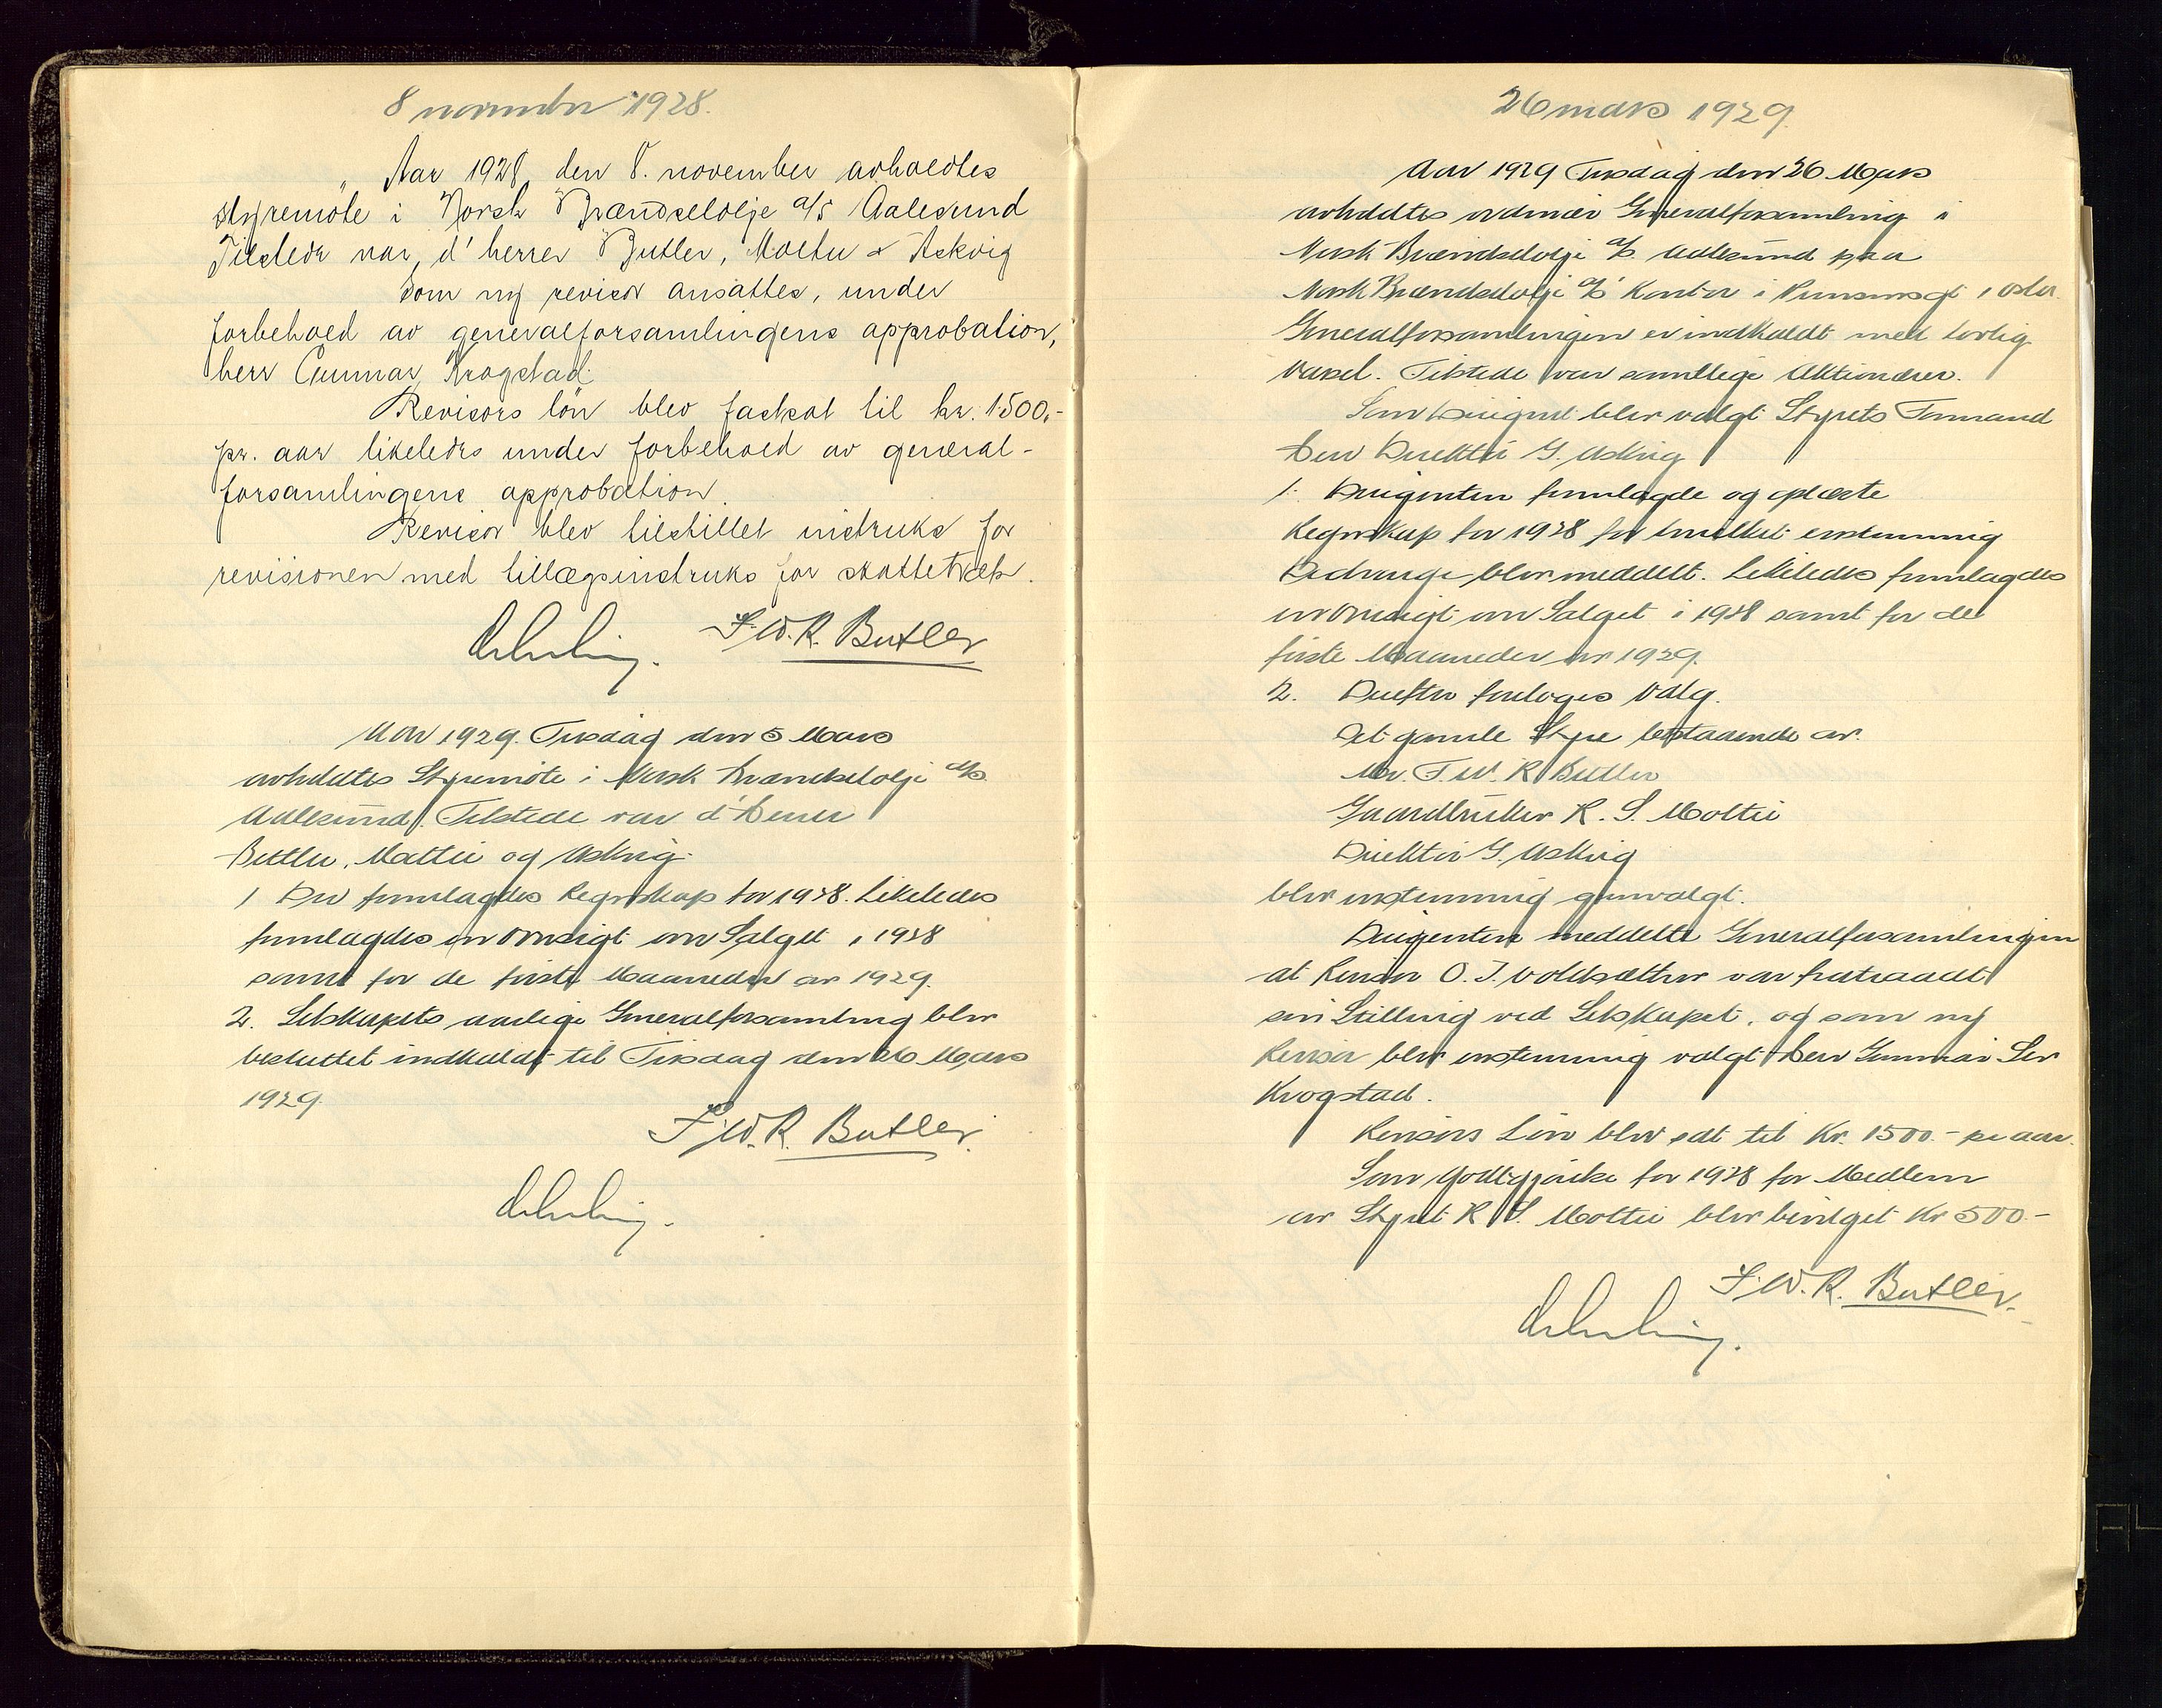 8 november 1928.
Aar 1928, den 8. november avholdtes
styremøte i Norsk Brændselolje a/s Aalesund
Tilstede var, d' herrer Butler, Moltu & Askvig
Som ny revisor ansattes, under
forbehold av generalforsamlingens approbation,
herr Gunnar Krogstad.
Revisors lön blev fastsat til kr. 1500,-
pr. aar likeledes under forbehold av general-
forsamlingens approbation.
Revisor blev tilstillet instruks for
revisionen med tillægsinstruks for skattetræk.
F.W.R. Butler
Aar 1929. Tirsdag den 5 Mars
avholdtes Styremöte i Norsk Brændselolje a/s
Aalesund. Tilstede var d' Herrer
Butler, Moltu og Askvig.
1 Der fremlagdes Regnskap for 1928. Likeledes
fremlagdes en Oversigt over Salget i 1928
samt for de förste Maaneder av 1929.
2. Selskapets aarlige Generalforsamling blev
besluttet indkaldt til Tirsdag den 26 Mars
1929.
F.W.R. Butler.
26 mars 1929.
Aar 1929 Tirsdag den 26 Mars
avholdtes ordinær Generalforsamling i
Norsk Brændselolje a/s Aalesund paa
Norsk Brændselolje a/s' Kontor i i Oslo.
Generalforsamlingen er indkaldt med lovlig
Varsel. Tilstede var samtlige Aktionærer.
Som Dirigent blev valgt Styrets Formand
Herr Direktör G. Askvig
1. Dirigenten fremlagde og oplæste
Regnskap for 1928 for hvilket enstemmig
Decharge blev meddelt. Likeledes fremlagdes
en Oversigt over Salget i 1928 samt for de
förste Maaneder av 1929.
2. Derefter foretoges Valg.
Det gamle Styre bestaaende av.
Mr. F.W.R Butler
Gaardbruker K. S. Moltu
Direktör G. Askvig
blev enstemmig gjenvalgt.
Dirigenten meddelte Generalforsamlingen
at Revisor O. J. Voldsæther var fratraadt
sin Stilling ved Selskapet, og som ny
Revisor blev enstemmig valgt Herr Gunnar
Krogstad.
Revisors Lön blev sat til Kr. 1500.- pr aar.
Som Godtgjörelse for 1928 for Medlem
av Styret K S. Moltu blev bevilget Kr 500.-
F.W.R. Butler.